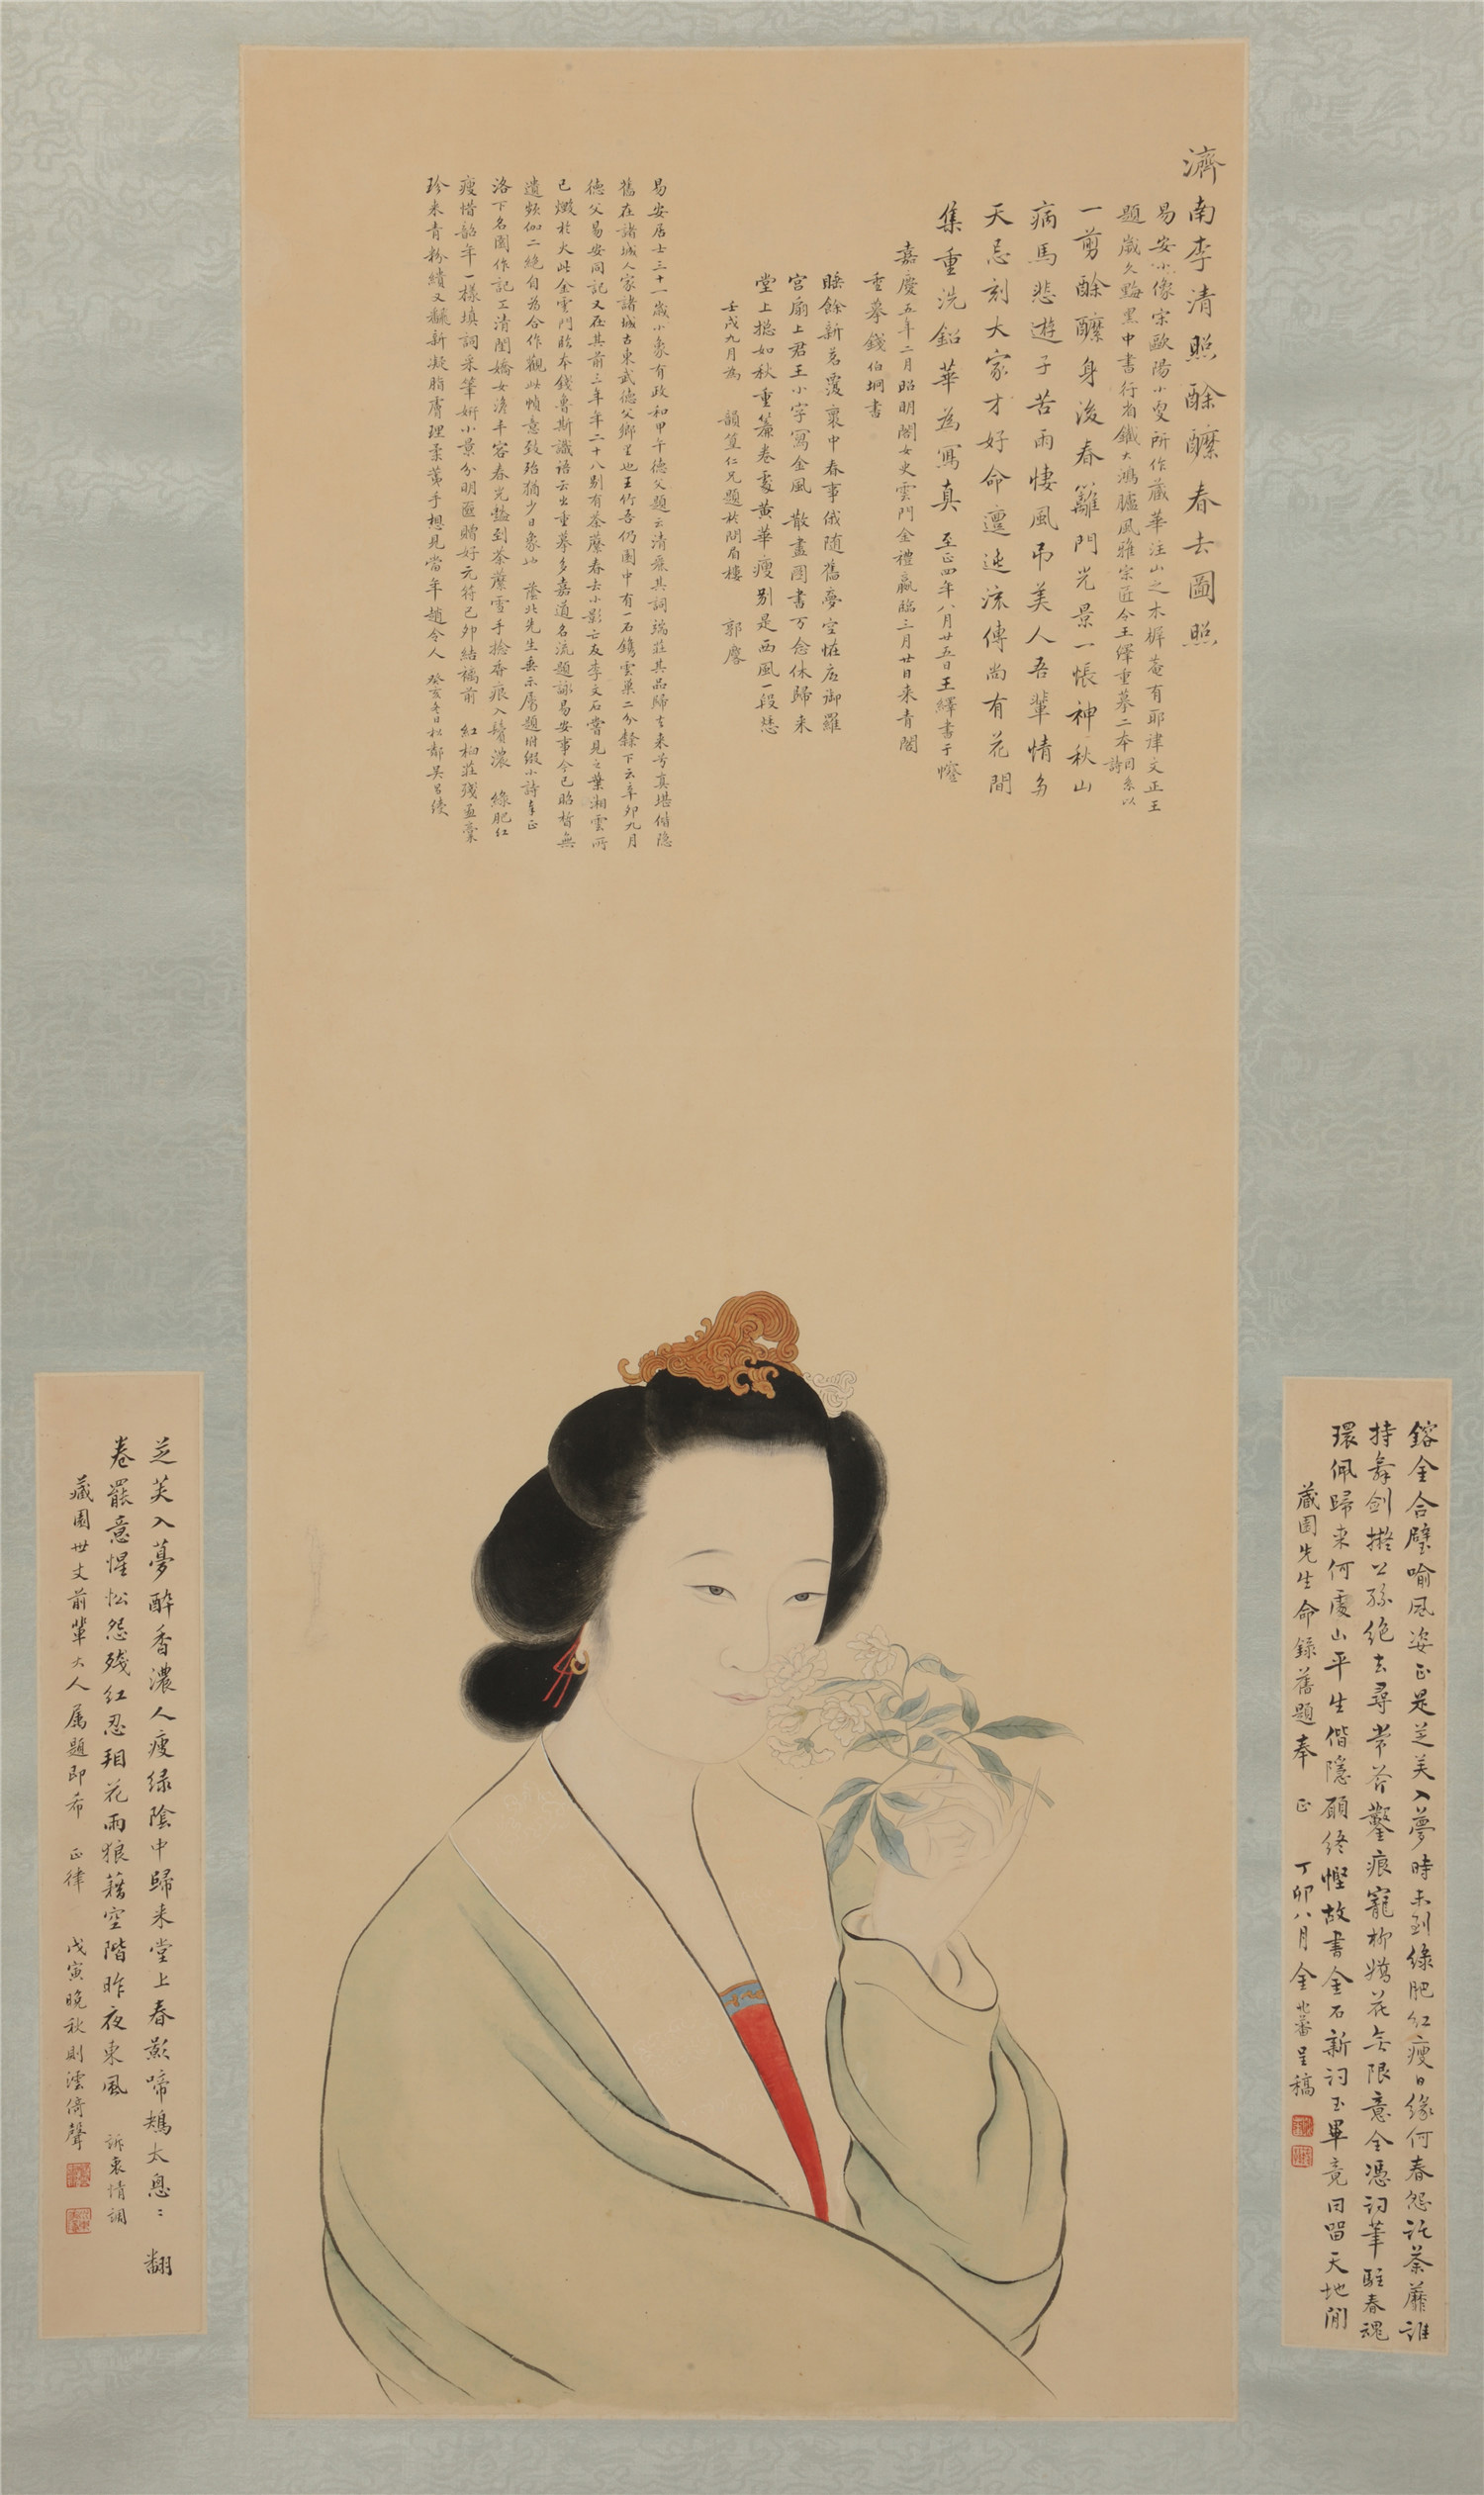 濟南李清照酴醾春去圖照
易安小像宋歐陽小叟所作藏華注山之木樨菴有耶律文正王
題歲久黝黑中書行省鐵大鴻臚風雅宗匠令王繹重摹二本因系以
詩
一剪酴醾身後春籬門光景一悵神秋山
病馬悲遊子苦雨悽風弔美人吾輩情多
天忌刻大家才好命邅迍流傳尚有花間
集重洗鉛華為寫真 至正四年八月廿五日王繹書于
嘉慶五年二月昭明閣女史雲門金禮嬴臨三月廿日來青閣
重摹錢伯坰書
賸餘新茗覆裏中春事俄隨舊夢空恠底御羅
宮扇上君王小字寫金風 散盡圖書万念休歸來
堂上揔如秋重簾卷處黃華瘦別是西風一段愁
壬戌九月為 韻篁仁兄題於問眉樓 郭麐
易安居士三十一歲小象有政和甲午德父題云清麗其詞端莊其品歸去來兮真堪偕隱
舊在諸城人家諸城古東武德父鄉里也王竹吾仍園中有一石鐫雲巢二分隸下云辛卯九月
德父易安同記又在其前三年年二十八別有荼蘼春去小影亡友李文石嘗見之葉湘雲所
已燬於火此金雲門臨本錢魯斯識語云出重摹多嘉道名流題詠易安事今已昭晳無
遺頻伽二絕自為合作觀此幀意致殆猶少日象也 蔭北先生垂示屬題坿綴小詩幸正
洛下名園作記工清閨嬌女澹丰容春光豔到荼蘼雪手捻香痕入鬢濃 綠肥紅
瘦惜韶年一樣填詞采筆妍小景分明匳贈好元符已卯結褵前 紅柏莊殘孟稾
珍來青粉繢又翻新凝脂膚理柔荑手想見當年趙令人 癸亥冬日松鄰吳昌綬
鎔金合璧喻風姿正是芝芙入夢時未到綠肥紅瘦日緣何春怨託荼蘼誰
持舞劍擬公孫絕去尋常斧鑿痕寵柳嬌花無限意全憑詞筆駐春魂
環佩歸來何處山平生偕隱願終慳故書金石新詞玉畢竟同留天地閒
藏園先生命錄舊題奉 正 丁卯八月全兆蕃呈稿
芝芙入夢醉香濃人瘦綠陰中歸來堂上春歇啼鴂太悤〻 翻
卷罷意惺忪怨殘紅忍拈花雨狼藉空階昨夜東風 訴衷情調
藏園世丈前輩大人属題即希 正律 戊寅晚秋則澐倚聲